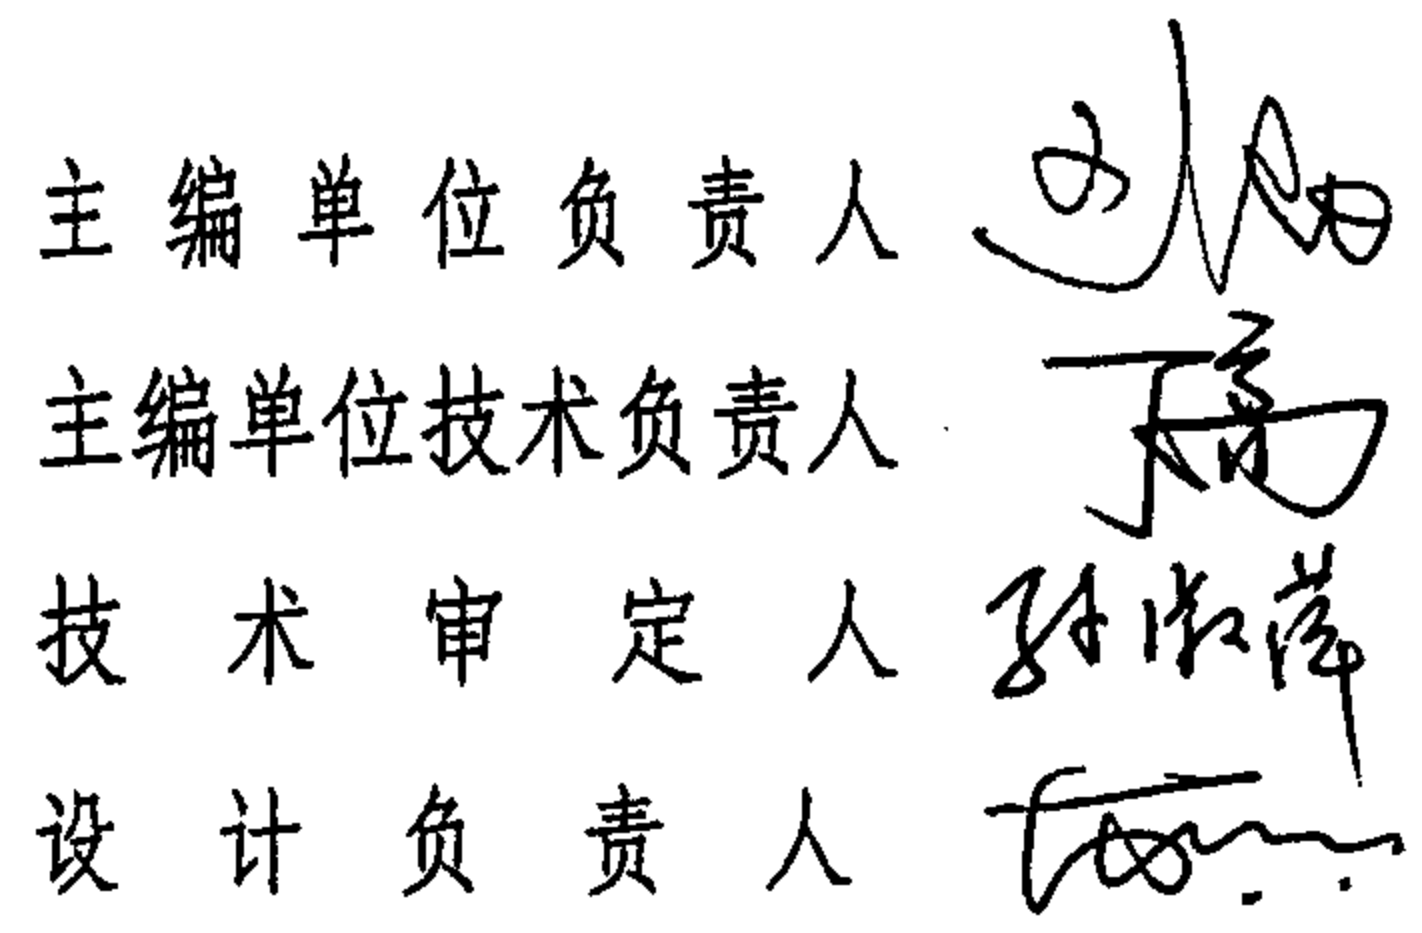 主编单位负责人
主编单位技术负责人
技术审定人 孙淑萍
设计负责人